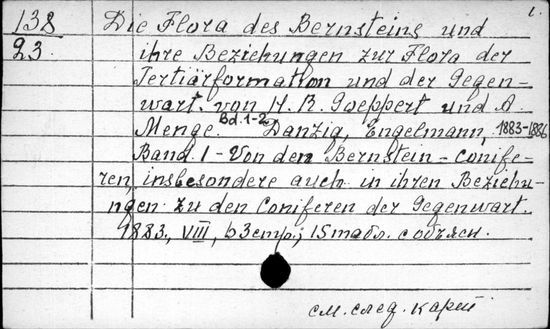 1.
138
23
Die Flora des Bernsteins und
ihre Beziehungen zur Flora der
Tertiärformation und der Gegen-
wart. von H. R. Goeppert und A.
Menge. Bd. 1-2 Danzig, Engelmann, 1883-1886
Band 1 - Von den Bernstein-conife-
ren, insbesondere auch in ihren Beziehu-
ngen zu den Coniferen der Gegenwart.
1883, VIII, 63 стр.; 15 табл. с объясн.
см. след. карт